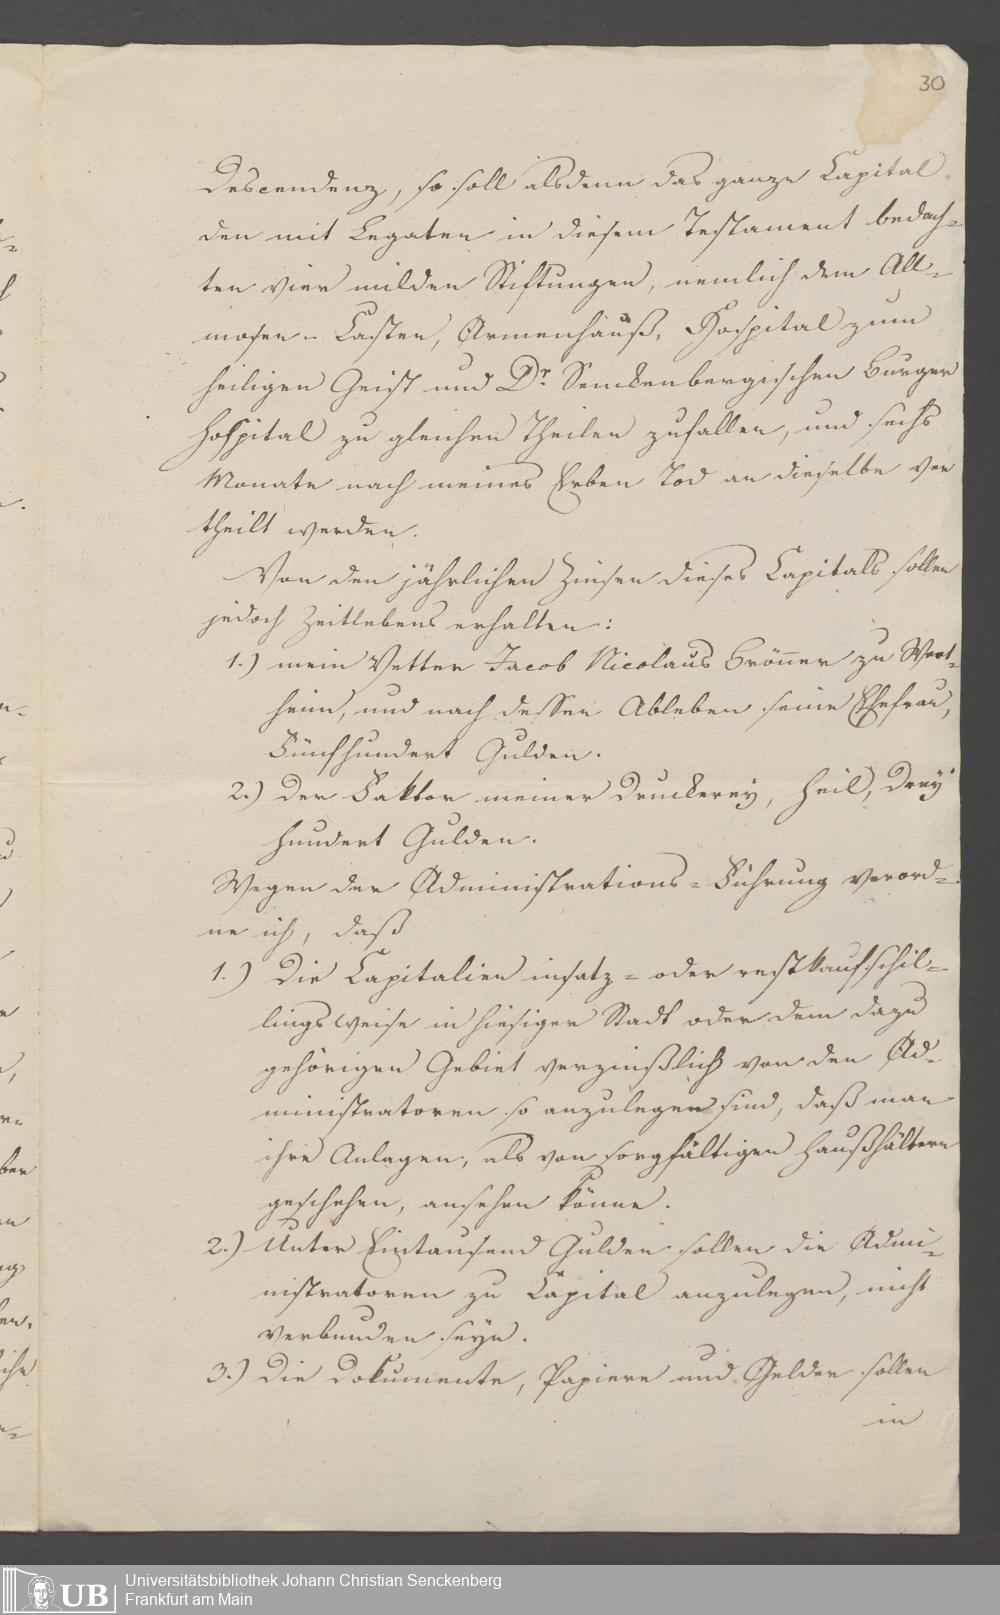 30
Descendenz, so soll alsdenn das ganze Capital
den mit Legaten in diesem Testament bedach=
ten vier milden Stiftungen, nemlich dem All=
mosen=Casten, Armenhauß, Hospital zum
heiligen Geist und Dr. Senckenbergischen Burger
hospital zu gleichen Theilen zufallen, und sechs
Monate nach meines Erben Tod an dieselbe ver
theilt werden.
Von den jährlichen Zinsen dieses Capitals sollen
jedoch Zeitlebens erhalten:
1.) mein Vetter Jacob Nicolaus Brönner zu Wert=
heim, und nach dessen Ableben seine Ehefrau,
Fünfhundert Gulden.
2.) Der Faktor meiner Druckerey, Heil, Drey
hundert Gulden.
Wegen der Administrations=Führung verord=
ne ich, daß
1.) Die Capitalien insatz= oder restkaufschil=
lingsweise in hiesiger Stadt oder dem dazu
gehörigen Gebiet verzinßlich von den Ad=
ministratoren so anzulegen sind, daß man
ihre Anlagen, als von sorgfältigen Haußhältern
geschehen, ansehen könne.
2.) Unter Eintausend Gulden sollen die Admi=
nistratoren zu Capital anzulegen, nicht
verbunden seyn.
3.) Die Dokumente, Papiere und Gelder sollen
in
UB
Universitätsbibliothek Johann Christian Senckenberg
Frankfurt am Main